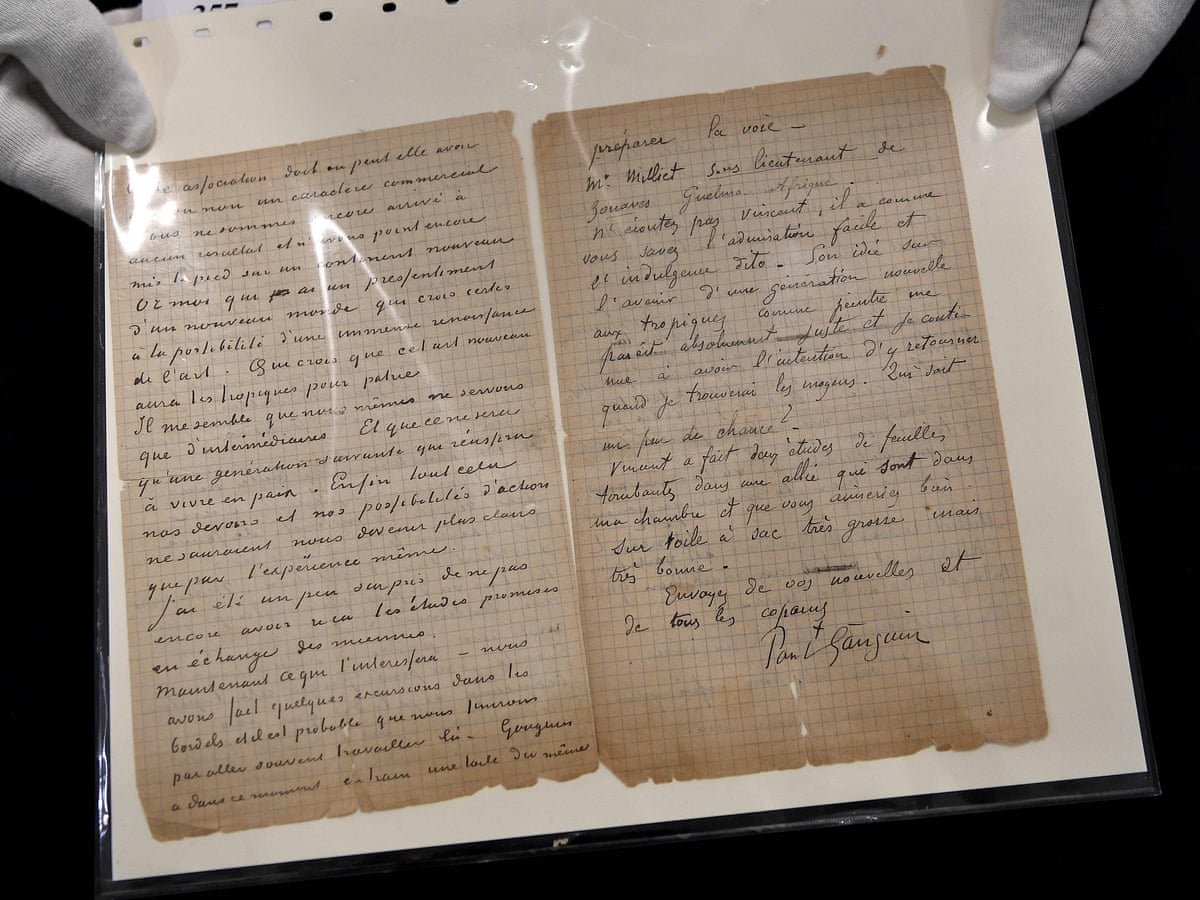 257
association doit ou peut elle avoir
ou non un caractère commercial
nous ne sommes encore arrivé à
aucun resultat et n'avons point encore
mis le pied sur un continent nouveau
Or moi qui ai un presentiment
d'un nouveau monde qui crois certes
à la possibilité d'une immense renaissance
de l'art. Qui crois que cet art nouveau
aura les tropiques pour patrie
Il me semble que nous mêmes ne servons
que d'intermédiaires Et que ce ne sera
qu'une génération suivante qui réussira
à vivre en paix. Enfin tout cela
nos devoirs et nos possibilités d'action
ne sauraient nous devenir plus clairs
que par l'expérience même.
J'ai été un peu surpris de ne pas
encore avoir reçu les études promises
en échange des miennes.
Maintenant ce qui t'interessera – nous
avons fait quelques excursions dans les
bordels et il est probable que nous finirons
par aller souvent travailler là – Gauguin
a dans ce moment en train une toile du même
préparer la voie –
Mr Milliet sous lieutenant de
Zouaves Guelma Afrique.
N'écoutez pas Vincent, il a comme
vous savez l'admiration facile et
l'indulgence dito. Son idée sur
l'avenir d'une génération nouvelle
aux tropiques comme peintre me
parait absolument juste et je conti-
nue à avoir l'intention d'y retourner
quand je trouverai les moyens. Qui sait
un peu de chance?
Vincent a fait deux études de feuilles
tombantes dans une allée qui sont dans
ma chambre et que vous aimeriez bien
sur toile à sac très grosse mais
très bonne.
Envoyez de vos nouvelles et
de tous les copains
Paul Gauguin